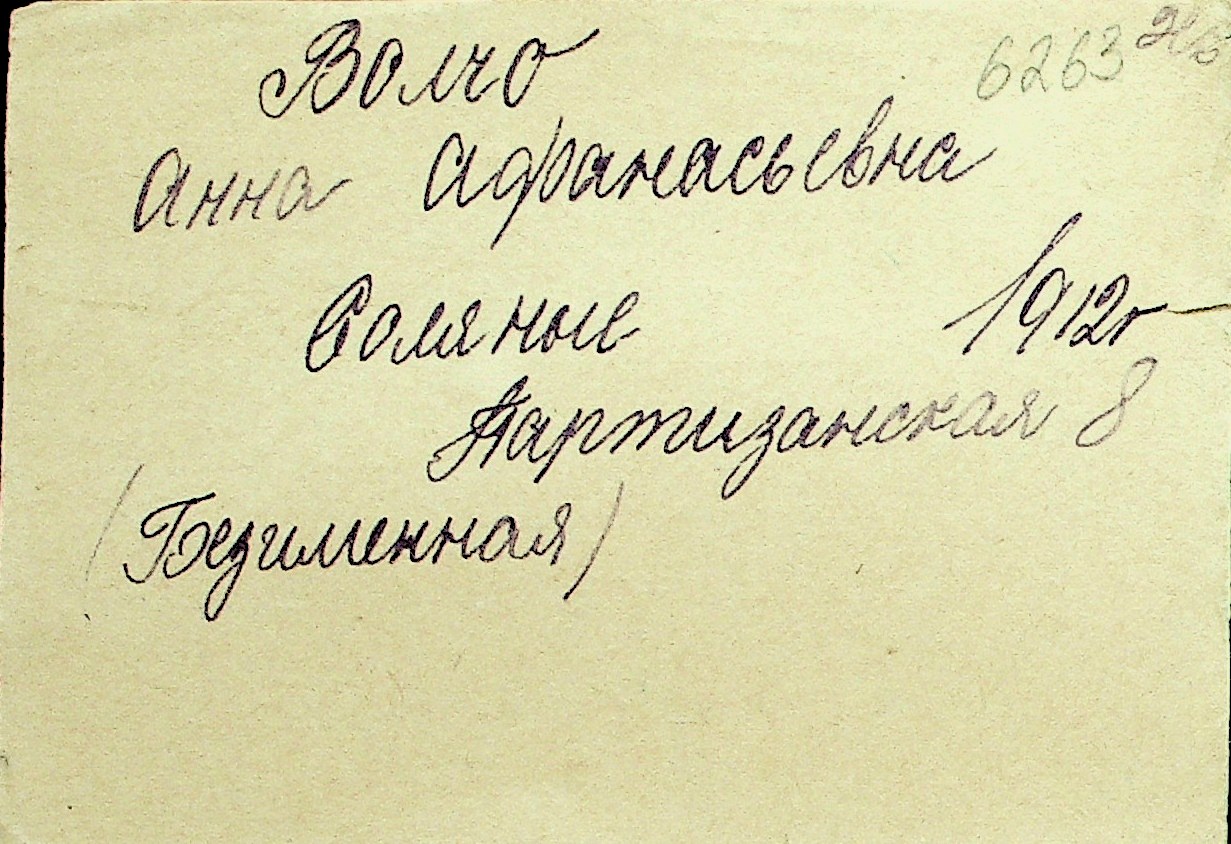 Волчо 6263
Анна Афанасьевна
Соляные 1912г
Партизанская 8
(Безименная)